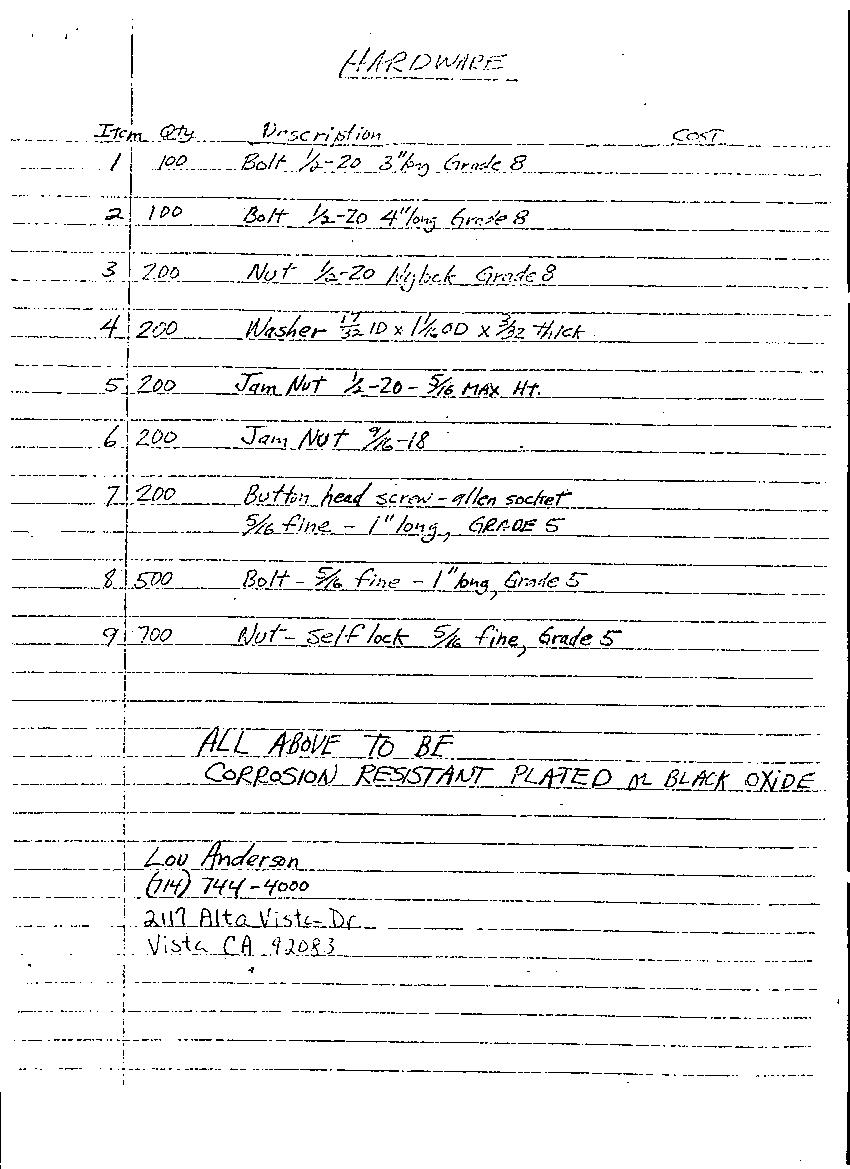 HARDWARE
Item Qty Description COST
1 100 Bolt 1/2-20 3" long Grade 8
2 100 Bolt 1/2-20 4" long Grade 8
3 200 Nut 1/2-20 Nylock Grade 8
4 200 Washer 17/32 ID x 1 1/16 OD x 3/32 thick
5 200 Jam Nut 1/2-20 - 5/16 MAX Ht.
6 200 Jam Nut 9/16-18
7 200 Button head screw - allen socket
5/16 fine - 1" long, GRADE 5
8 500 Bolt - 5/16 fine - 1" long, Grade 5
9 700 Nut - self lock 5/16 fine, Grade 5
ALL ABOVE TO BE
CORROSION RESISTANT PLATED OR BLACK OXIDE
Lou Anderson
(714) 744-4000
2117 Alta Vista Dr
Vista CA 92083